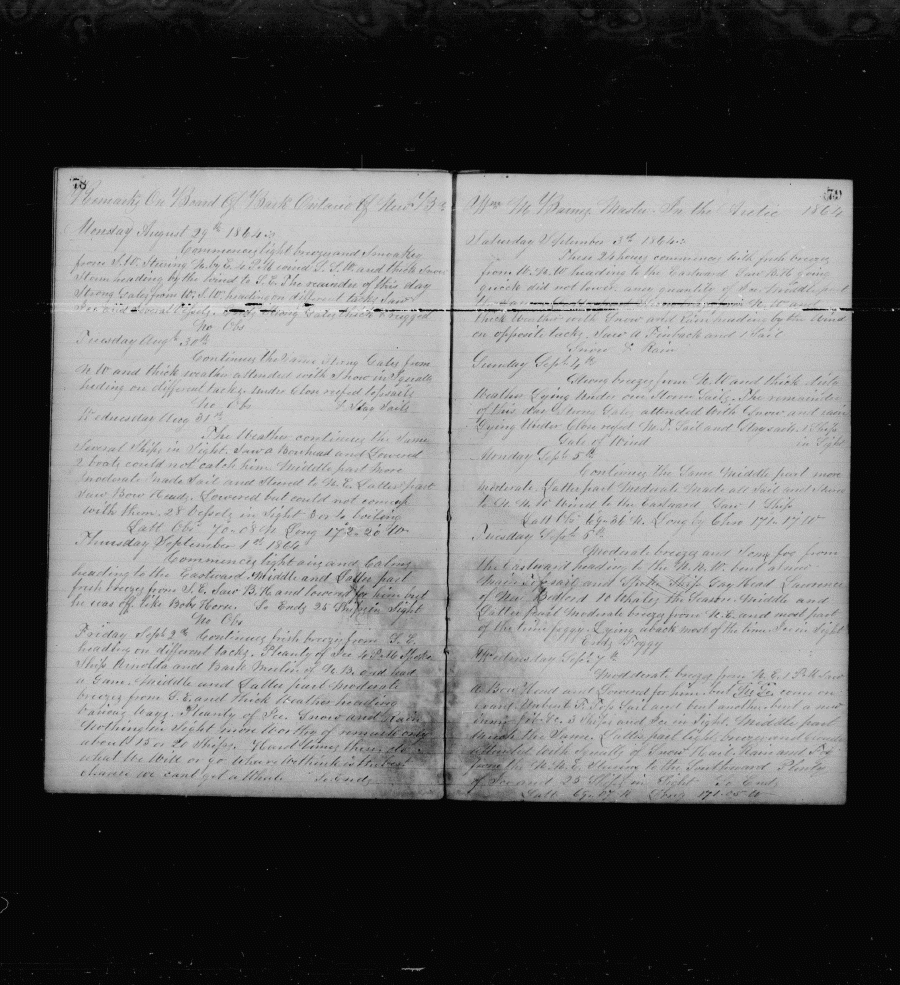 78
Remarks On Board Of Bark Ontario Of New B
Monday August 29th 1864
Commences light breezes and Smoakey
from S.W. Stering N by E 4 P.M. wind S.S.W and thick Snow
Storm heading by the wind to S.E. The remainder of this day
Strong Gales from W.S.W. heading on different tacks Saw
Ice and several Strong Gales thick & rugged
No Obs
Tuesday Aug 30th
Continues the Same Strong Gales from
N.W and thick weather attended with Snow in Squalls
heding on different tacks under Close reefed topsails
No Obs & Stay Sails
Wednesday Aug 31st
The Weather continues the Same
Several Ships in Sight. Saw a Bowhead and Lowered
2 boats could not catch him Middle part more
moderate made Sail and Stood to N.E. Latter part
Saw Bow Heads. Lowered but could not come up
with them. 28 Vessels in Sight 3 or 4 boiling
Latt Obs 70-08 N Long 172-20 W
Thursday September 1st 1864
Commences light airs and Calms
heading to the Eastward Middle and Latter part
fresh breeze from S.E. Saw B.H. and lowered for him but
he was off like Bob Horn. So Ends 25 Ships in Sight
No Obs
Friday Sept 2nd Continues fresh breeze from S.E.
heading on different tacks. Pleanty of Ice 4 P.M. Spoke
Ship Arnolda and Bark Merlin of N.B. and had
a Gam. Middle and Latter part Moderate
breezes from S.E. and thick Weather heading
various ways. Pleanty of Ice. Snow and
Nothing in Sight more worthy of remark only
about 15 or 20 Ships. Hard times these do
what we Will or go where we think is the best
chance we cant get a Whale So Ends
79
Wm M Barnes Master In the Arctic 1864
Saturday September 3rd 1864
These 24 hours commences with fresh breezes
from W.N.W heading to the Eastward Saw B.H. going
quick did not lower. any quantity of Ice Middle part
N.W and
thick Weather with Snow and Rain heading by the Wind
on opposite tacks. Saw a Finback and 1 Sail
Snow & Rain
Sunday Sept 4th
Strong breezes from N.W and thick
Weather Lying Under our Storm Sails. The remainder
of this day Strong Gales attended With Snow and rain
Lying Under Close reefed M.T. Sail and Staysails 2 Ships
Gale of Wind in Sight
Monday Sept 5th
Continues the Same Middle part more
moderate. Latter part Moderate Made all Sail and Stood
to N.N.W Wind to the Eastward Saw 1 Ship
Latt Obs 69-36 N. Long by Chro 171-17 W
Tuesday Sept 6th
Moderate breezes and Some fog from
the Eastward heading to the N.N.W.
Made Sail and Spoke Ship Gay Head Lawrence
of New Bedford 10 Whales the Season Middle and
Latter part Moderate breeze from N.E. and most part
of the time foggy Lying aback most of the time Ice in Sight
Ends Foggy
Wednesday Sept 7th
Moderate breeze from N.E. 1 P.M. Saw
a Bow Head and Lowered for him but
Top Sail and
5 Ships and Ice in Sight. Middle part
much the Same. Latter part light breezes and Cloudy
attended With Squalls of Snow Hail Rain and
from the N.N.E. Stering to the Southward Plenty
of Ice and 25 Ships in Sight So Ends
Latt 69-07 N Long 171-05 W